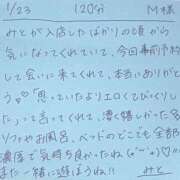 1/23 120分 M様
みとが入店したばかりの頃から
気になってくれていて、今回事前予約
して会いに来てくれて、本当にありがと
う♡「思っていたよりエロくてびっくりし
た」って言ってくれて、凄く嬉しかった
ソファやお風呂、ベッドのどこでも全部
濃厚で気持ち良かったね(o´³`o)♡
また一緒に遊ぼうね!! みと